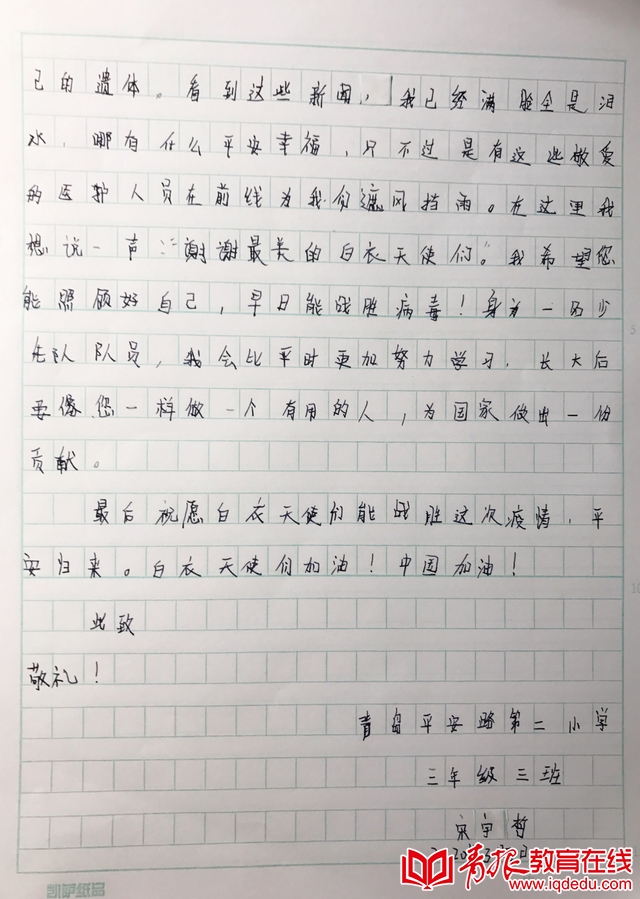 己的遗体。看到这些新闻，我已经满脸全是泪
水，哪有什么平安幸福，只不过是有这些敬爱
的医护人员在前线为我们遮风挡雨。在这里我
想说一声：“谢谢最美的白衣天使们。”我希望您
能照顾好自己，早日能战胜病毒！身为一名少
先队队员，我会比平时更加努力学习，长大后
要像您一样做一个有用的人，为国家做出一份
贡献。
最后祝愿白衣天使们能战胜这次疫情，平
安归来。白衣天使们加油！中国加油！
此致
敬礼！
青岛平安路第二小学
三年级三班
宋宇哲
青报教育在线
www.iqdedu.com
凯萨纸品
5
10